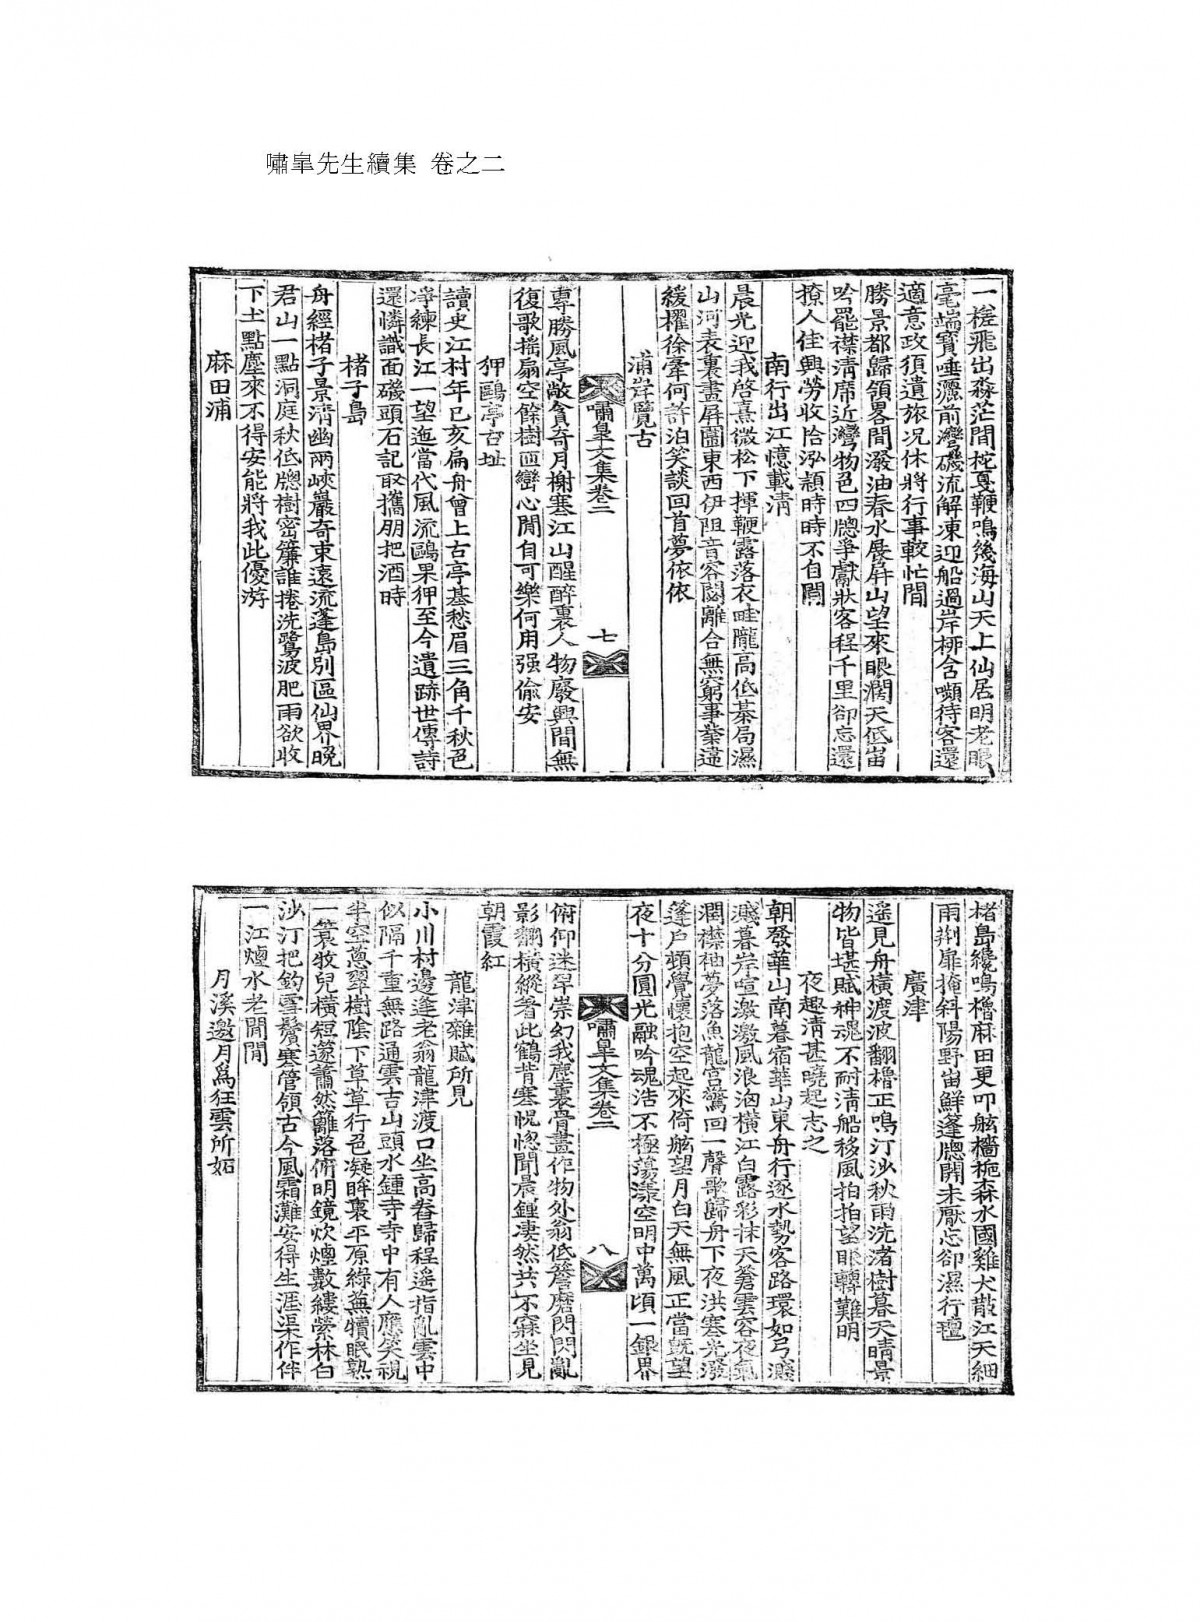 嘯皐先生續集 卷之二
一槎飛出淼茫間柁戛鞭鳴幾海山天上仙居明老眼
毫端寶唾灑前灣磯流解凍迎船過岸柳含嚬待客還
適意政須遣旅况休將行事較忙閒
勝景都歸領畧間潑油春水展屛山望來眼濶天低峀
吟罷襟淸席近灣物色四牕爭獻狀客程千里却忘還
撩人佳興勞收拾泓穎時時不自閒
南行出江憶載淸
晨光迎我啓熹微松下揮鞭露落衣畦隴高低棊局濕
山河表裏畫屛圍東西伊阻音容閟離合無窮事業違
緩櫂徐牽何許泊笑談回首夢依依
浦岸覽古
專勝風亭敞貪奇月榭塞江山醒醉裏人物廢興間無
復歌搖扇空餘樹匝巒心閒自可樂何用强偸安
狎鷗亭古址
讀史江村年已亥扁舟曾上古亭基愁眉三角千秋色
凈練長江一望迤當代風流鷗果狎至今遺跡世傳詩
還憐識面磯頭石記取攜朋把酒時
楮子島
舟經楮子景濟幽兩峽巖奇束遠流蓬島別區仙界晩
君山一點洞庭秋低牕樹密簾誰捲洗鷺波肥雨欲收
下土點塵來不得安能將我此優游
麻田浦
嘯皐文集卷二
七
楮島纜鳴櫓麻田更叩舷檣桅森水國雞犬散江天細
雨荆扉掩斜陽野峀鮮篷牕開未厭忘却濕行氊
廣津
遥見舟橫渡波翻櫓正鳴汀沙秋雨洗渚樹暮天晴景
物皆堪賦神魂不耐淸船移風拍拍望眼轉難明
夜趣淸甚曉起志之
朝發華山南暮宿華山東舟行逐水勢客路環如弓濺
濺暮岸喧激激風浪洶橫江白露彩抹天蒼雲容夜氣
濶襟袖夢落魚龍宮驚回一聲歌歸舟下夜洪塞光潑
篷戶頓覺懷抱空起來倚舷望月白天無風正當旣望
夜十分圓光融吟魂浩不極蕩漾空明中萬頃一銀界
俯仰迷穹崇幻我塵蠹骨盡作物外翁低簷磨閃閃亂
影翻橫縱者此鶴背塞怳惚聞晨鍾凄然共不寐坐見
朝霞紅
龍津雜賦所見
小川村邊逢老翁龍津渡口坐高舂歸程遥指亂雲中
似隔千重無路通雲吉山頭水鍾寺寺中有人應笑視
半空蔥翠樹陰下草草行色凝眸裏平原綠蕪犢眠熟
一簑牧兒橫短邃蕭然籬落俯明鏡炊煙數縷縈林白
沙汀把釣雪鬢寒管領古今風霜灘安得生涯渠作伴
一江煙水老閒閒
月溪邀月爲狂雲所妬
嘯皐文集卷二
八